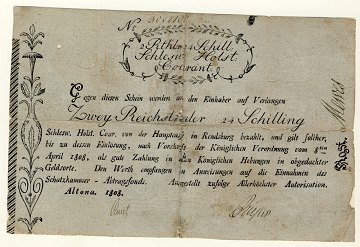 No
2 Rthlr. 24 Schill.
Schlesw. Holst.
Courant.
Gegen diesen Schein werden an den Einhaber auf Verlangen
Zwey Reichsthaler 24 Schilling
Schlesw. Holst. Cour. von der Hauptcasse in Rendsburg bezahlt, und gilt solcher,
bis zu dessen Einlösung, nach Vorschrift der Königlichen Verordnung vom 8ten
April 1808, als gute Zahlung in Königlichen Hebungen in obgedachter
Geldsorte. Den Werth empfingen in Anweisungen auf die Einnahmen des
Schatzkammer-Abtragsfonds. Ausgestellt zufolge Allerhöchster Autorisation.
Altona, 1808.